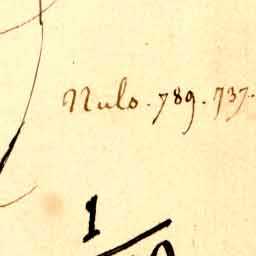 Nulo. 789. 737.
1